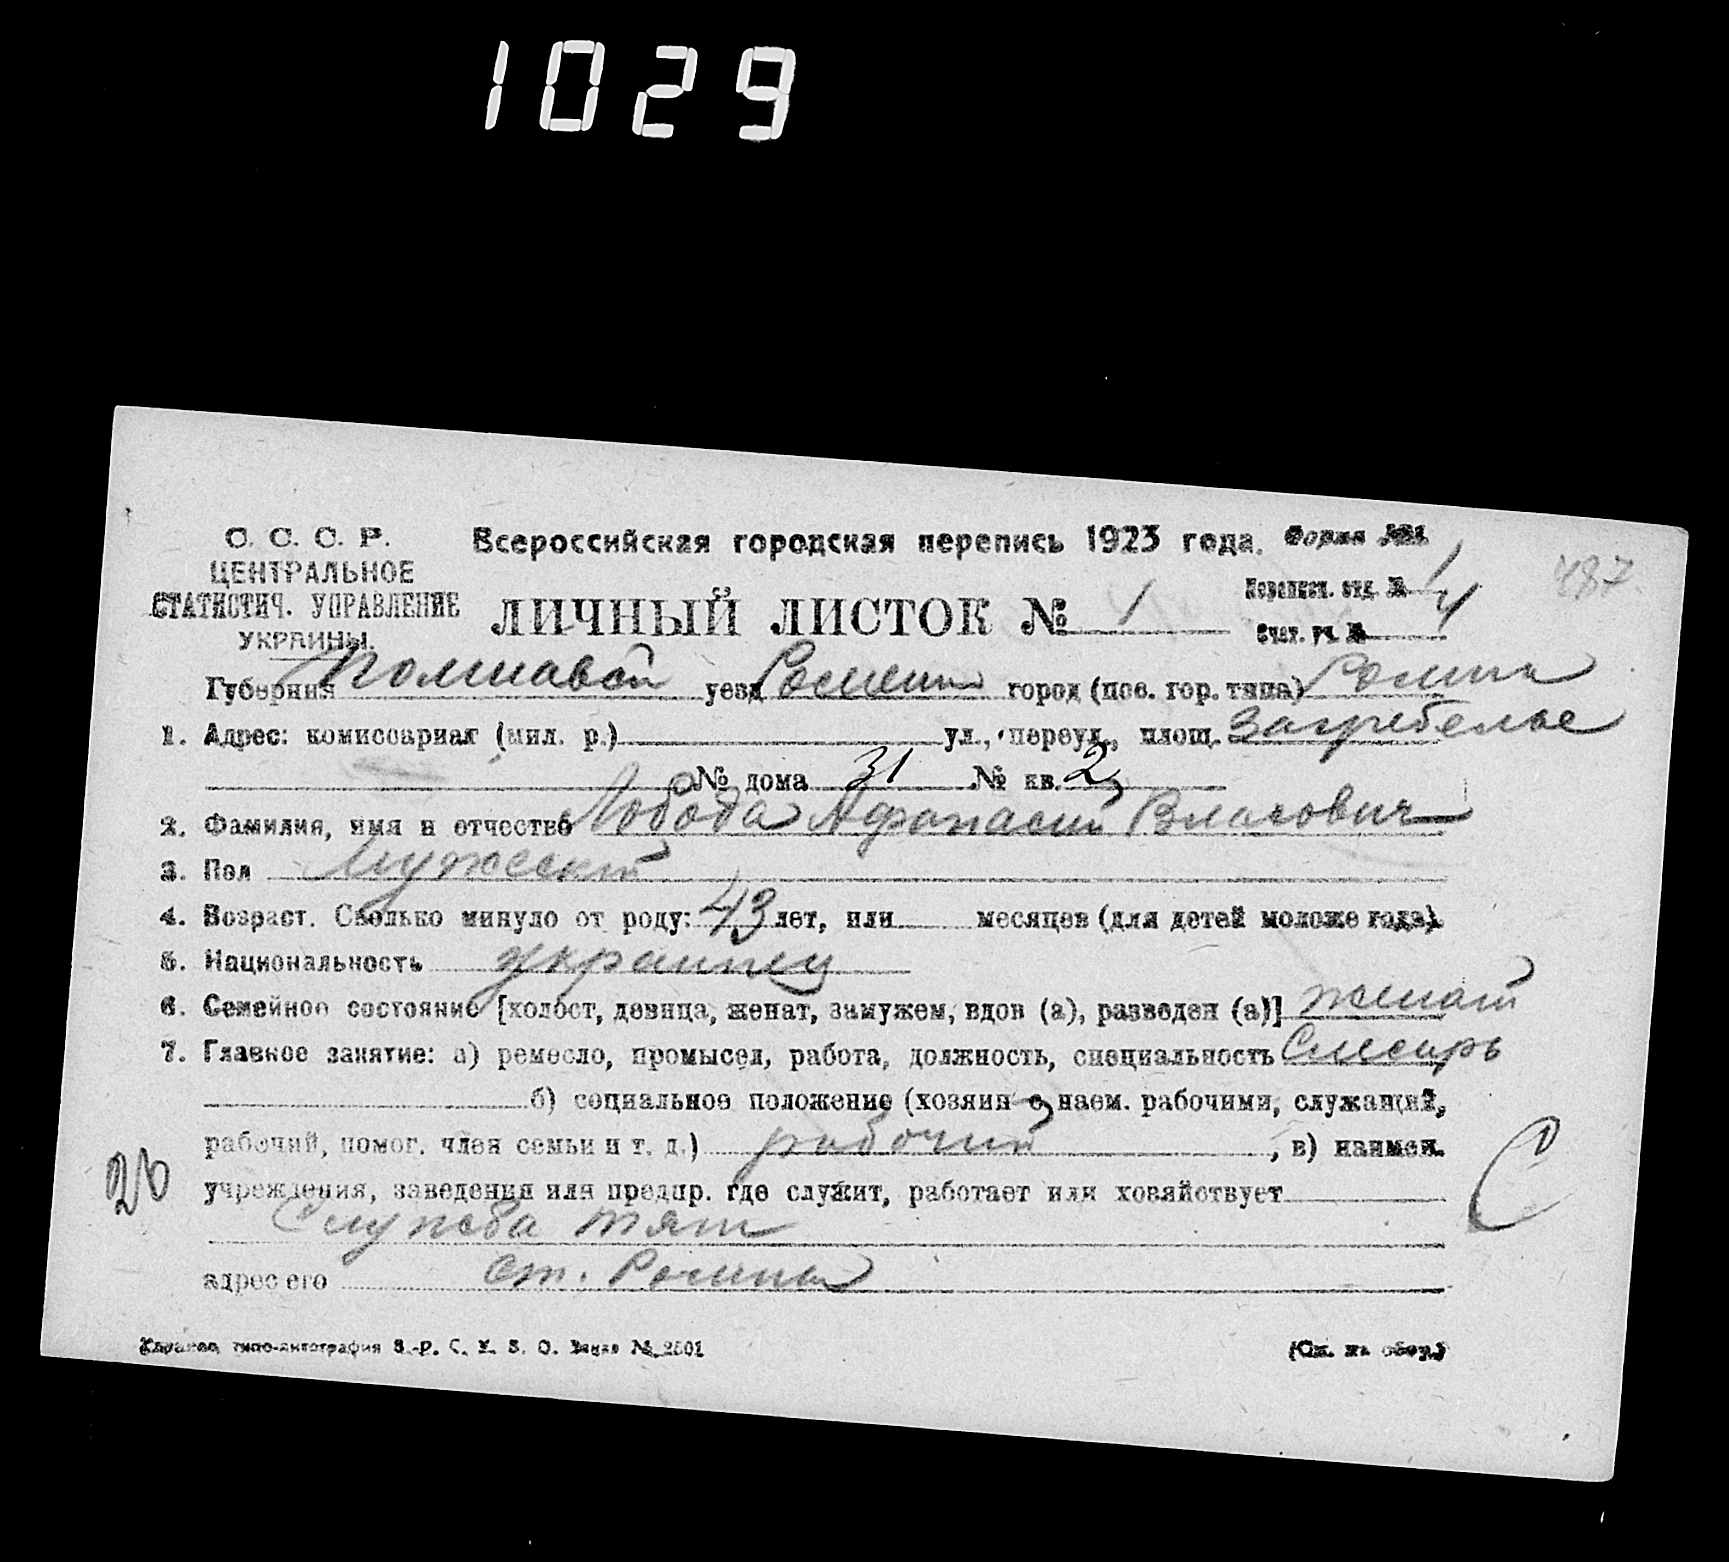 1029
С. С. С. Р.
ЦЕНТРАЛЬНОЕ
СТАТИСТИЧ. УПРАВЛЕНИЕ
УКРАИНЫ.
Всероссийская городская перепись 1923 года. Форма №1
ЛИЧНЫЙ ЛИСТОК № 1
Переписн. отд. № 1
Счет. уч. № 4
487
Губерния Полтавск уезд Роменск город (пос. гор. типа) Ромны
1. Адрес: комиссариат (мил. р.) ул., переул., площ. Загребелье
№ дома 31 № кв. 2
2. Фамилия, имя и отчество Лобода Афанасий Власович
3. Пол Мужской
4. Возраст. Сколько минуло от роду: 43 лет, или месяцев (для детей моложе года).
5. Национальность украинец
6. Семейное состояние [холост, девица, женат, замужем, вдов (а), разведен (а)] женат
7. Главное занятие: а) ремесло, промысел, работа, должность, специальность Слесарь
б) социальное положение (хозяин с наем. рабочими, служащий,
рабочий, помог. член семьи и т. д.) рабочий, в) наимен.
учреждения, заведения или предпр. где служит, работает или хозяйствует
Служба тяги
адрес его ст. Ромны
26
С
типо-литография Заказ № 2501
(См. на обор.)